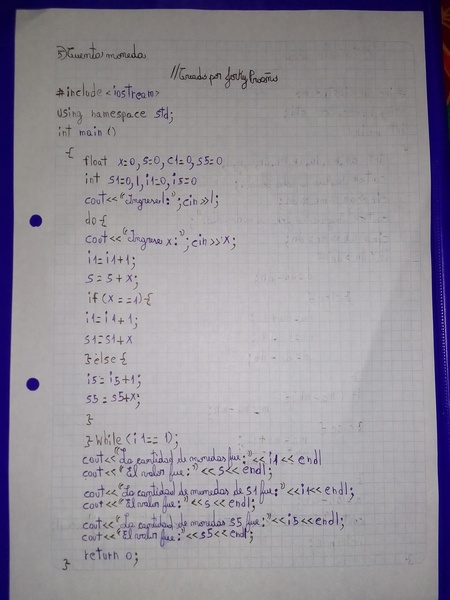 5) Cuenta monedas
//Creado por Jorky Proaño
#include <iostream>
using namespace std;
int main ()
{
float x=0, s=0, c1=0, s5=0
int s1=0, l, i1=0, i5=0
cout<<"Ingrese l:"; cin>>l;
do {
cout<<"Ingrese x:"; cin>>x;
i1=i1+1;
s = s + x;
if (x ==1) {
i1= i1+1;
s1=s1+x
} else {
i5= i5+1;
s5= s5+x;
}
} While (i1== 1);
cout<<"La cantidad de monedas fue:"<<i1<< endl
cout<<"El valor fue:"<<s<<endl;
cout<<"La cantidad de monedas de S1 fue:"<<i1<<endl;
cout<<"El valor fue:"<<s<<endl;
cout<<"La cantidad de monedas S5 fue:"<<i5<<endl;
cout<<"El valor fue:"<<s5<<endl;
return 0;
}